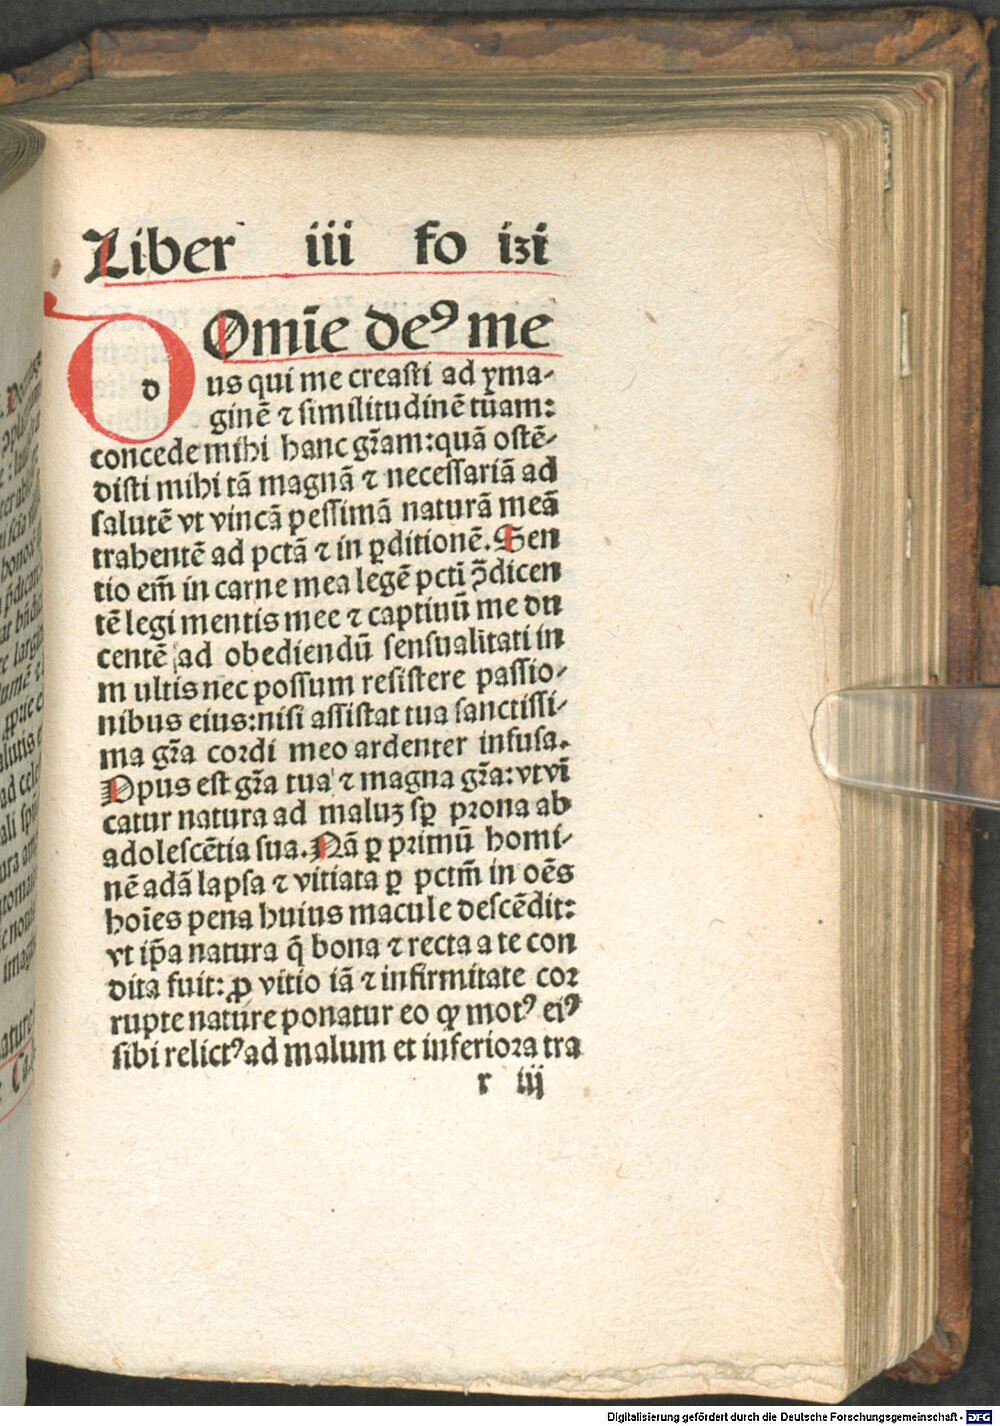 Liber iii fo izi
DOmīe deꝰ me
d
us qui me creasti ad yma-
ginē ⁊ similitudinē tuam:
concede mihi hanc gr̄am:quā ostē-
disti mihi tā magnā ⁊ necessariā ad
salutē vt vincā pessimā naturā meā
trahentē ad pctā ⁊ in ꝑditionē. Sen
tio em̄ in carne mea legē pcti ꝯ̄dicen
tē legi mentis mee ⁊ captiuū me du
centē ad obediendū sensualitati in
m ultis nec possum resistere passio-
nibus eius:nisi assistat tua sanctissi-
ma gr̄a cordi meo ardenter infusa.
Opus est gr̄a tua ⁊ magna gr̄a: vt vī
catur natura ad maluꝫ sꝑ prona ab
adolescētia sua. Nā ꝑ primū homi-
nē adā lapsa ⁊ vitiata ꝑ pctm̄ in oēs
hoīes pena huius macule descēdit:
vt ip̄a natura q̄ bona ⁊ recta a te con
dita fuit: ꝓ vitio iā ⁊ infirmitate cor
rupte nature ponatur eo ꝙ motꝰ eiꝰ
sibi relictꝰ ad malum et inferiora tra
r iij
Digitalisierung gefördert durch die Deutsche Forschungsgemeinschaft - DFG